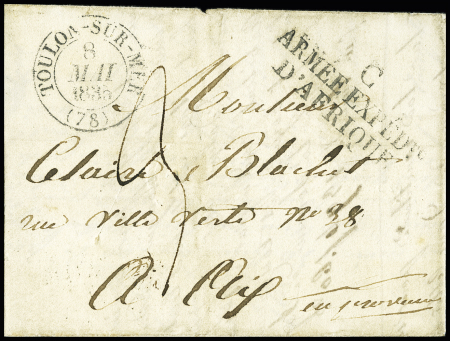 TOULON-SUR-MER
8
MAI
1835
(78)
C
ARMÉE EXPÉDRE
D'AFRIQUE
Monsieur
Claire Blachet
rue Ville Verte no 38
A Aix
en provence